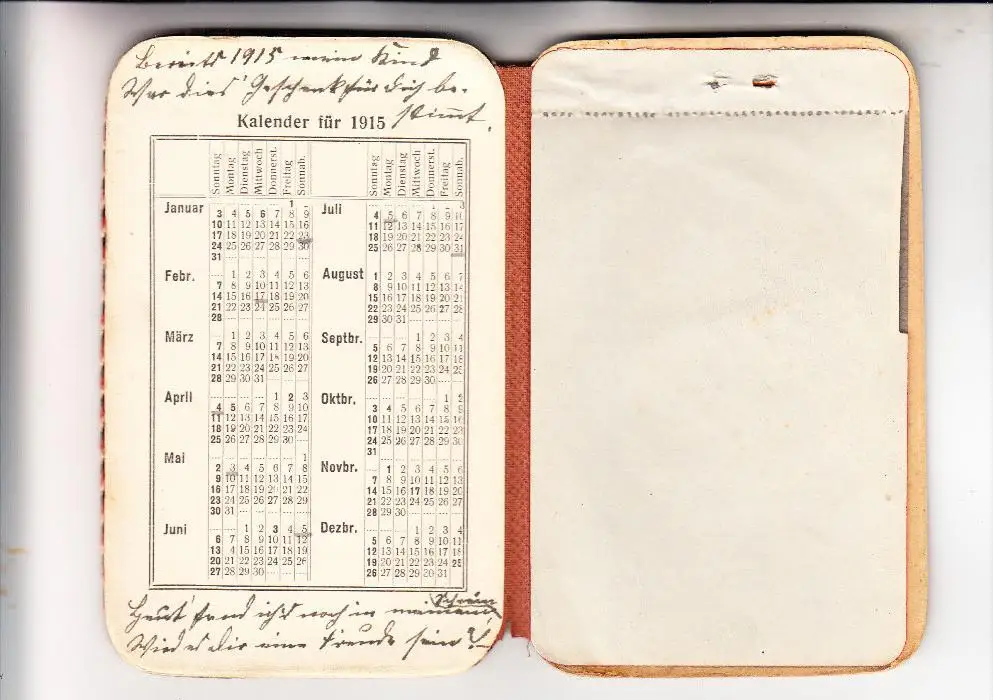 Bereits 1915 mein Kind
War dies' Geschenk für Dich be-
stimmt.
Kalender für 1915
Sonntag Montag Dienstag Mittwoch Donnerst. Freitag Sonnab.
Januar
1 2
3 4 5 6 7 8 9
10 11 12 13 14 15 16
17 18 19 20 21 22 23
24 25 26 27 28 29 30
31
Febr.
1 2 3 4 5 6
7 8 9 10 11 12 13
14 15 16 17 18 19 20
21 22 23 24 25 26 27
28
März
1 2 3 4 5 6
7 8 9 10 11 12 13
14 15 16 17 18 19 20
21 22 23 24 25 26 27
28 29 30 31
April
1 2 3
4 5 6 7 8 9 10
11 12 13 14 15 16 17
18 19 20 21 22 23 24
25 26 27 28 29 30
Mai
1
2 3 4 5 6 7 8
9 10 11 12 13 14 15
16 17 18 19 20 21 22
23 24 25 26 27 28 29
30 31
Juni
1 2 3 4 5
6 7 8 9 10 11 12
13 14 15 16 17 18 19
20 21 22 23 24 25 26
27 28 29 30
Sonntag Montag Dienstag Mittwoch Donnerst. Freitag Sonnab.
Juli
1 2 3
4 5 6 7 8 9 10
11 12 13 14 15 16 17
18 19 20 21 22 23 24
25 26 27 28 29 30 31
August
1 2 3 4 5 6 7
8 9 10 11 12 13 14
15 16 17 18 19 20 21
22 23 24 25 26 27 28
29 30 31
Septbr.
1 2 3 4
5 6 7 8 9 10 11
12 13 14 15 16 17 18
19 20 21 22 23 24 25
26 27 28 29 30
Oktbr.
1 2
3 4 5 6 7 8 9
10 11 12 13 14 15 16
17 18 19 20 21 22 23
24 25 26 27 28 29 30
31
Novbr.
1 2 3 4 5 6
7 8 9 10 11 12 13
14 15 16 17 18 19 20
21 22 23 24 25 26 27
28 29 30
Dezbr.
1 2 3 4
5 6 7 8 9 10 11
12 13 14 15 16 17 18
19 20 21 22 23 24 25
26 27 28 29 30 31
Heut' fand ich's noch in meinem Schrein
Wird es dir eine Freude sein?!